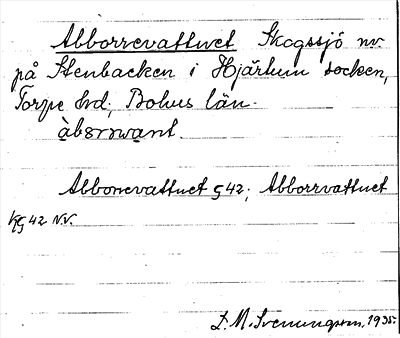 Abborrevattnet Skogssjö nv.
på Stenbacken i Hjärtum socken,
Torpe hd; Bohus län.
àbørswant
Abborrevattnet g 42; Abborrvattnet
kg 42 N.V.
D. M. Svenungsson, 1935.